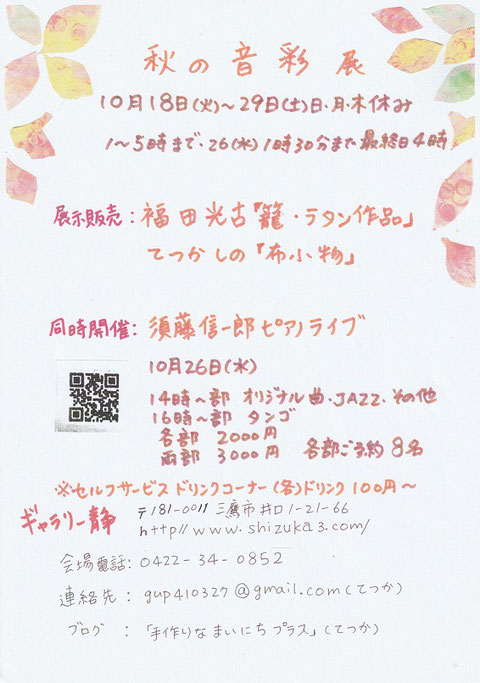 秋の音彩展
10月18日(火)~29日(土)日・月・木休み
1~5時まで・26(水)1時30分まで最終日4時
展示販売:福田光古「籠・ラタン作品」
てつかしの「布小物」
同時開催:須藤信一郎ピアノライブ
10月26日(水)
14時~部 オリジナル曲・JAZZ・その他
16時~部 タンゴ
各部 2000円
両部 3000円 各部ご予約8名
※セルフサービスドリンクコーナー(各)ドリンク100円~
ギャラリー静 〒181-0011 三鷹市井口1-21-66
http//www.shizuka3.com/
会場電話:0422-34-0852
連絡先:gup410327@gmail.com(てつか)
ブログ:「手作りなまいにちプラス」(てつか)